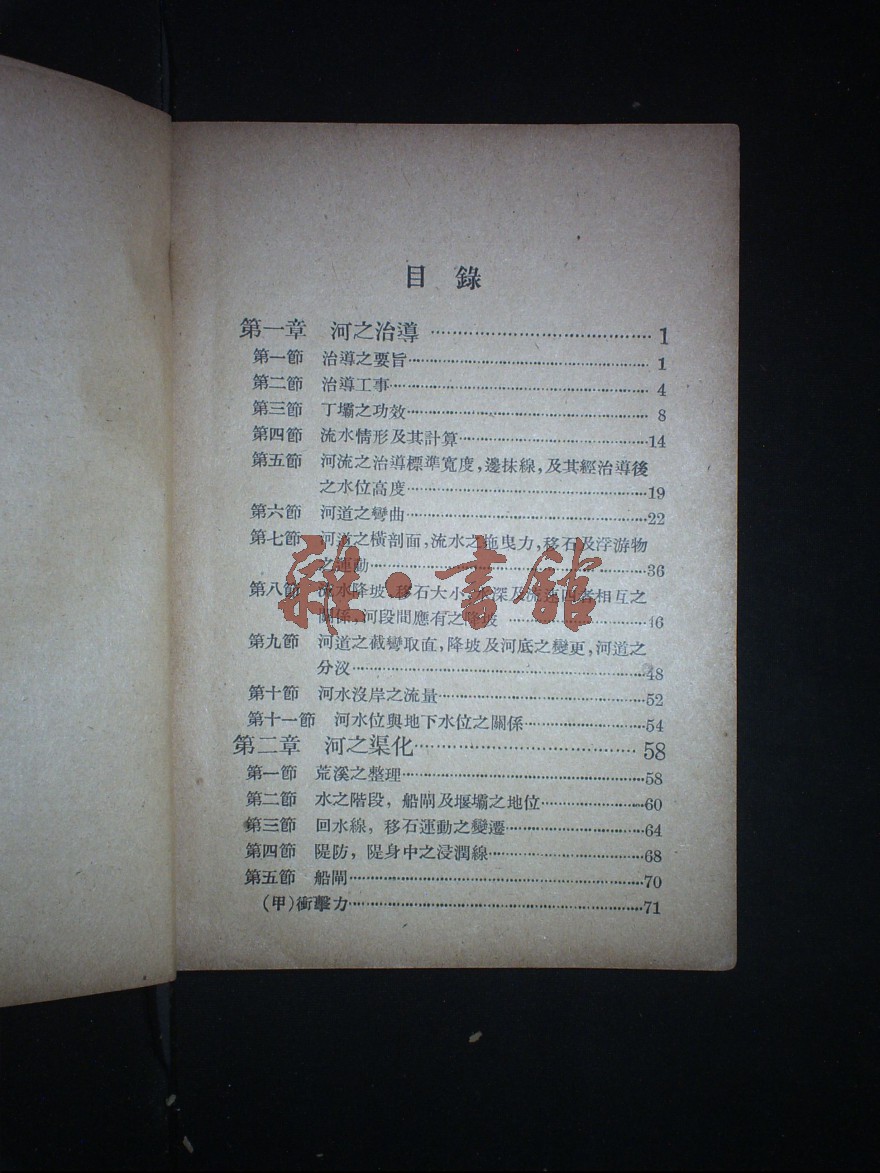 目錄
第一章 河之治導 1
第一節 治導之要旨 1
第二節 治導工事 4
第三節 丁壩之功效 8
第四節 流水情形及其計算 14
第五節 河流之治導標準寬度,邊抹線,及其經治導後
之水位高度 19
第六節 河道之彎曲 22
第七節 河道之橫剖面,流水之拖曳力,移石及浮游物
之運動 36
第八節 流水降坡、移石大小、水深及流速四者相互之
關係,河段間應有之降坡 46
第九節 河道之截彎取直,降坡及河底之變更,河道之
分汊 48
第十節 河水沒岸之流量 52
第十一節 河水位與地下水位之關係 54
第二章 河之渠化 58
第一節 荒溪之整理 58
第二節 水之階段,船閘及堰壩之地位 60
第三節 回水線,移石運動之變遷 64
第四節 隄防,隄身中之浸潤線 68
第五節 船閘 70
(甲)衝擊力 71
雜·書館